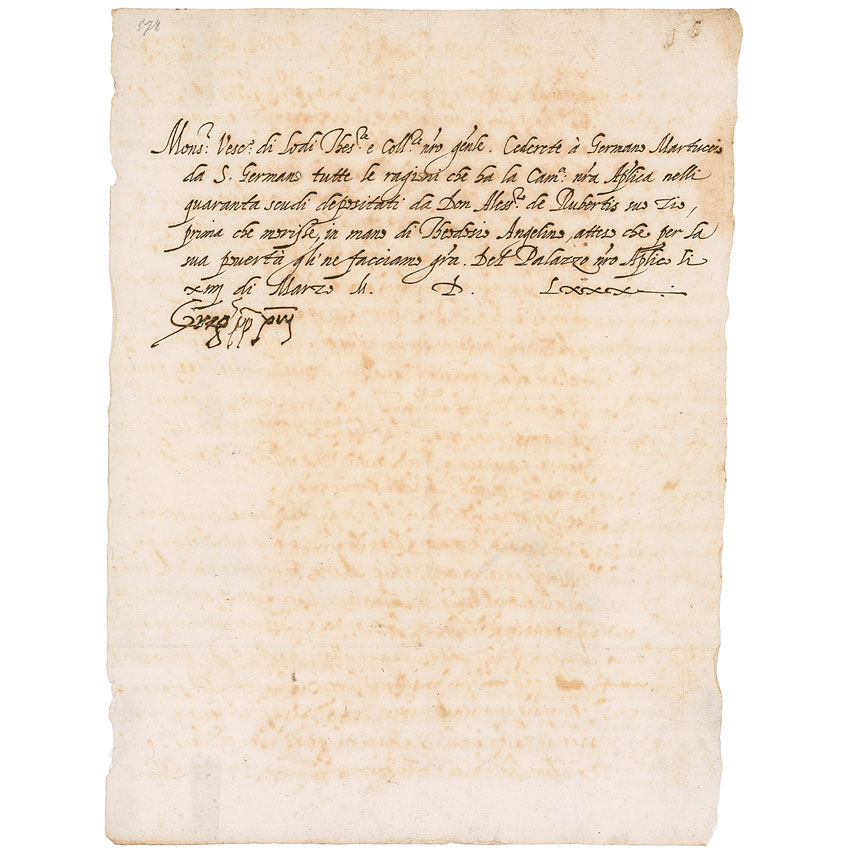 578
Mons.r Vesc.o di Lodi Thes.re e Coll.re nro gnle. Cederete à Germano Martuccio
da S. Germano tutte le ragioni che ha la Cam.a nra Aplica nelli
quaranta scudi depositati da Don Aless.ro de Rubertis suo zio,
prima che morisse, in mano di Theodosio Angelino, atteso che per la
sua povertà gli ne facciamo gra. Del Palazzo nro Aplico li
xiij di Marzo M. D. Lxxx
Greg pp